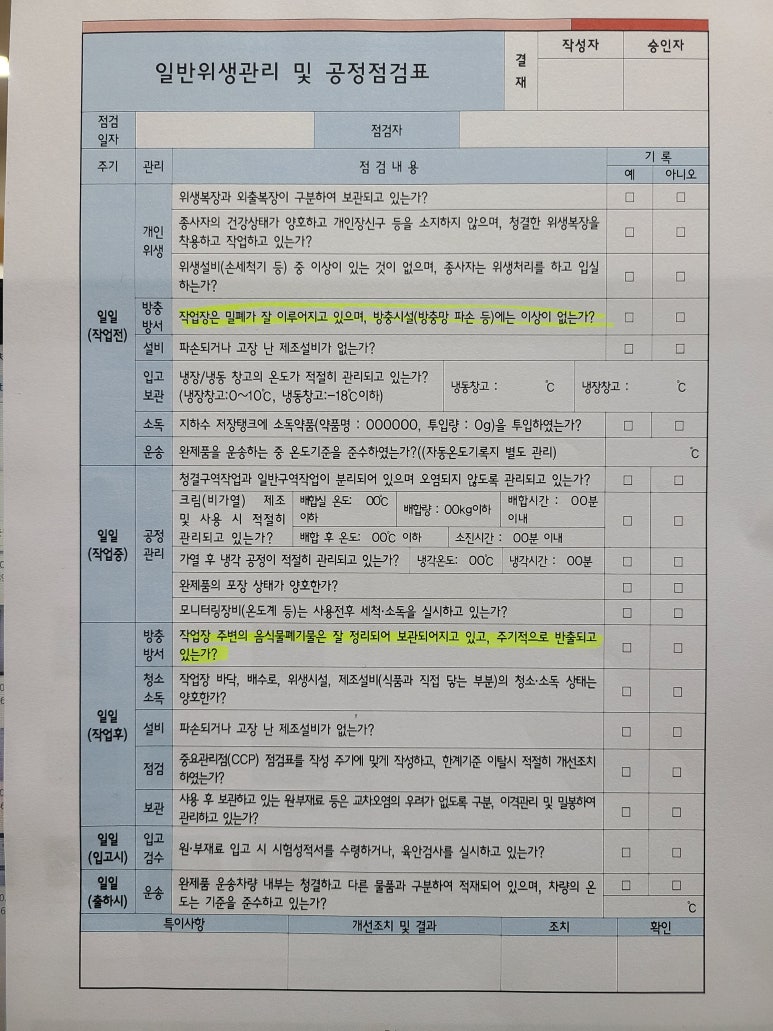 일반위생관리 및 공정점검표
결재
작성자
승인자
점검일자
점검자
주기
관리
점 검 내 용
기 록
예
아니오
일일
(작업전)
개인
위생
위생복장과 외출복장이 구분하여 보관되고 있는가?
□ □
종사자의 건강상태가 양호하고 개인장신구 등을 소지하지 않으며, 청결한 위생복장을
착용하고 작업하고 있는가?
□ □
위생설비(손세척기 등) 중 이상이 있는 것이 없으며, 종사자는 위생처리를 하고 입실
하는가?
□ □
방충
방서
작업장은 밀폐가 잘 이루어지고 있으며, 방충시설(방충망 파손 등)에는 이상이 없는가?
□ □
설비
파손되거나 고장 난 제조설비가 없는가?
□ □
입고
보관
냉장/냉동 창고의 온도가 적절히 관리되고 있는가?
(냉장창고:0~10℃, 냉동창고:-18℃이하)
냉동창고 : ℃
냉장창고 : ℃
소독
지하수 저장탱크에 소독약품(약품명 : OOOOOO, 투입량 : 0g)을 투입하였는가?
□ □
운송
완제품을 운송하는 중 온도기준을 준수하였는가?((자동온도기록지 별도 관리)
℃
일일
(작업중)
공정
관리
청결구역작업과 일반구역작업이 분리되어 있으며 오염되지 않도록 관리되고 있는가?
□ □
크림(비가열) 제조
및 사용 시 적절히
관리되고 있는가?
배합실 온도: OO℃
이하
배합량 : OOkg이하
배합시간 : OO분
이내
배합 후 온도: OO℃ 이하
소진시간 : OO분 이내
□ □
가열 후 냉각 공정이 적절히 관리되고 있는가?
냉각온도: OO℃
냉각시간 : OO분
□ □
완제품의 포장 상태가 양호한가?
□ □
모니터링장비(온도계 등)는 사용전후 세척·소독을 실시하고 있는가?
□ □
일일
(작업후)
방충
방서
작업장 주변의 음식물폐기물은 잘 정리되어 보관되어지고 있고, 주기적으로 반출되고
있는가?
□ □
청소
소독
작업장 바닥, 배수로, 위생시설, 제조설비(식품과 직접 닿는 부분)의 청소·소독 상태는
양호한가?
□ □
설비
파손되거나 고장 난 제조설비가 없는가?
□ □
점검
중요관리점(CCP) 점검표를 작성 주기에 맞게 작성하고, 한계기준 이탈시 적절히 개선조치
하였는가?
□ □
보관
사용 후 보관하고 있는 원부재료 등은 교차오염의 우려가 없도록 구분, 이격관리 및 밀봉하여
관리하고 있는가?
□ □
일일
(입고시)
입고
검수
원·부재료 입고 시 시험성적서를 수령하거나, 육안검사를 실시하고 있는가?
□ □
일일
(출하시)
운송
완제품 운송차량 내부는 청결하고 다른 물품과 구분하여 적재되어 있으며, 차량의 온
도는 기준을 준수하고 있는가?
□ □
℃
특이사항
개선조치 및 결과
조치
확인